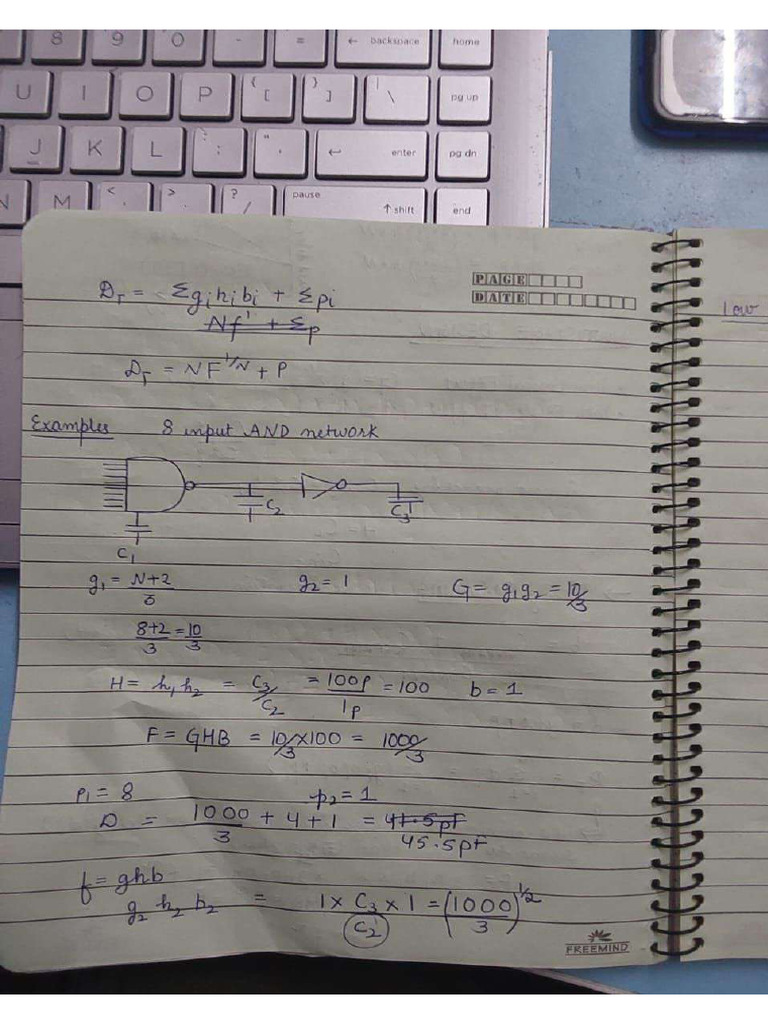 8 9 0 - = ← backspace home
U I O P { [ } ] | \ pg up
J K L : ; " ' ← enter pg dn
N M < , > . ? / pause ↑ shift end
PAGE
DATE
D_T = Σg_i h_i b_i + Σp_i
Nf' + Σp
D_T = NF^{1/N} + P
low
Examples 8 input AND network
C_2
C_3
C_1
g_1 = N+2/3 g_2 = 1 G = g_1 g_2 = 10/3
8+2/3 = 10/3
H = h_1 h_2 = C_3/C_2 = 100p/1p = 100 b = 1
F = GHB = 10/3 × 100 = 1000/3
P_1 = 8 p_2 = 1
D = 1000/3 + 4 + 1 = 41.5pf
45.5pf
f = ghb
g_2 h_2 b_2 = 1 × C_3/C_2 × 1 = (1000/3)^{1/2}
FREEMIND